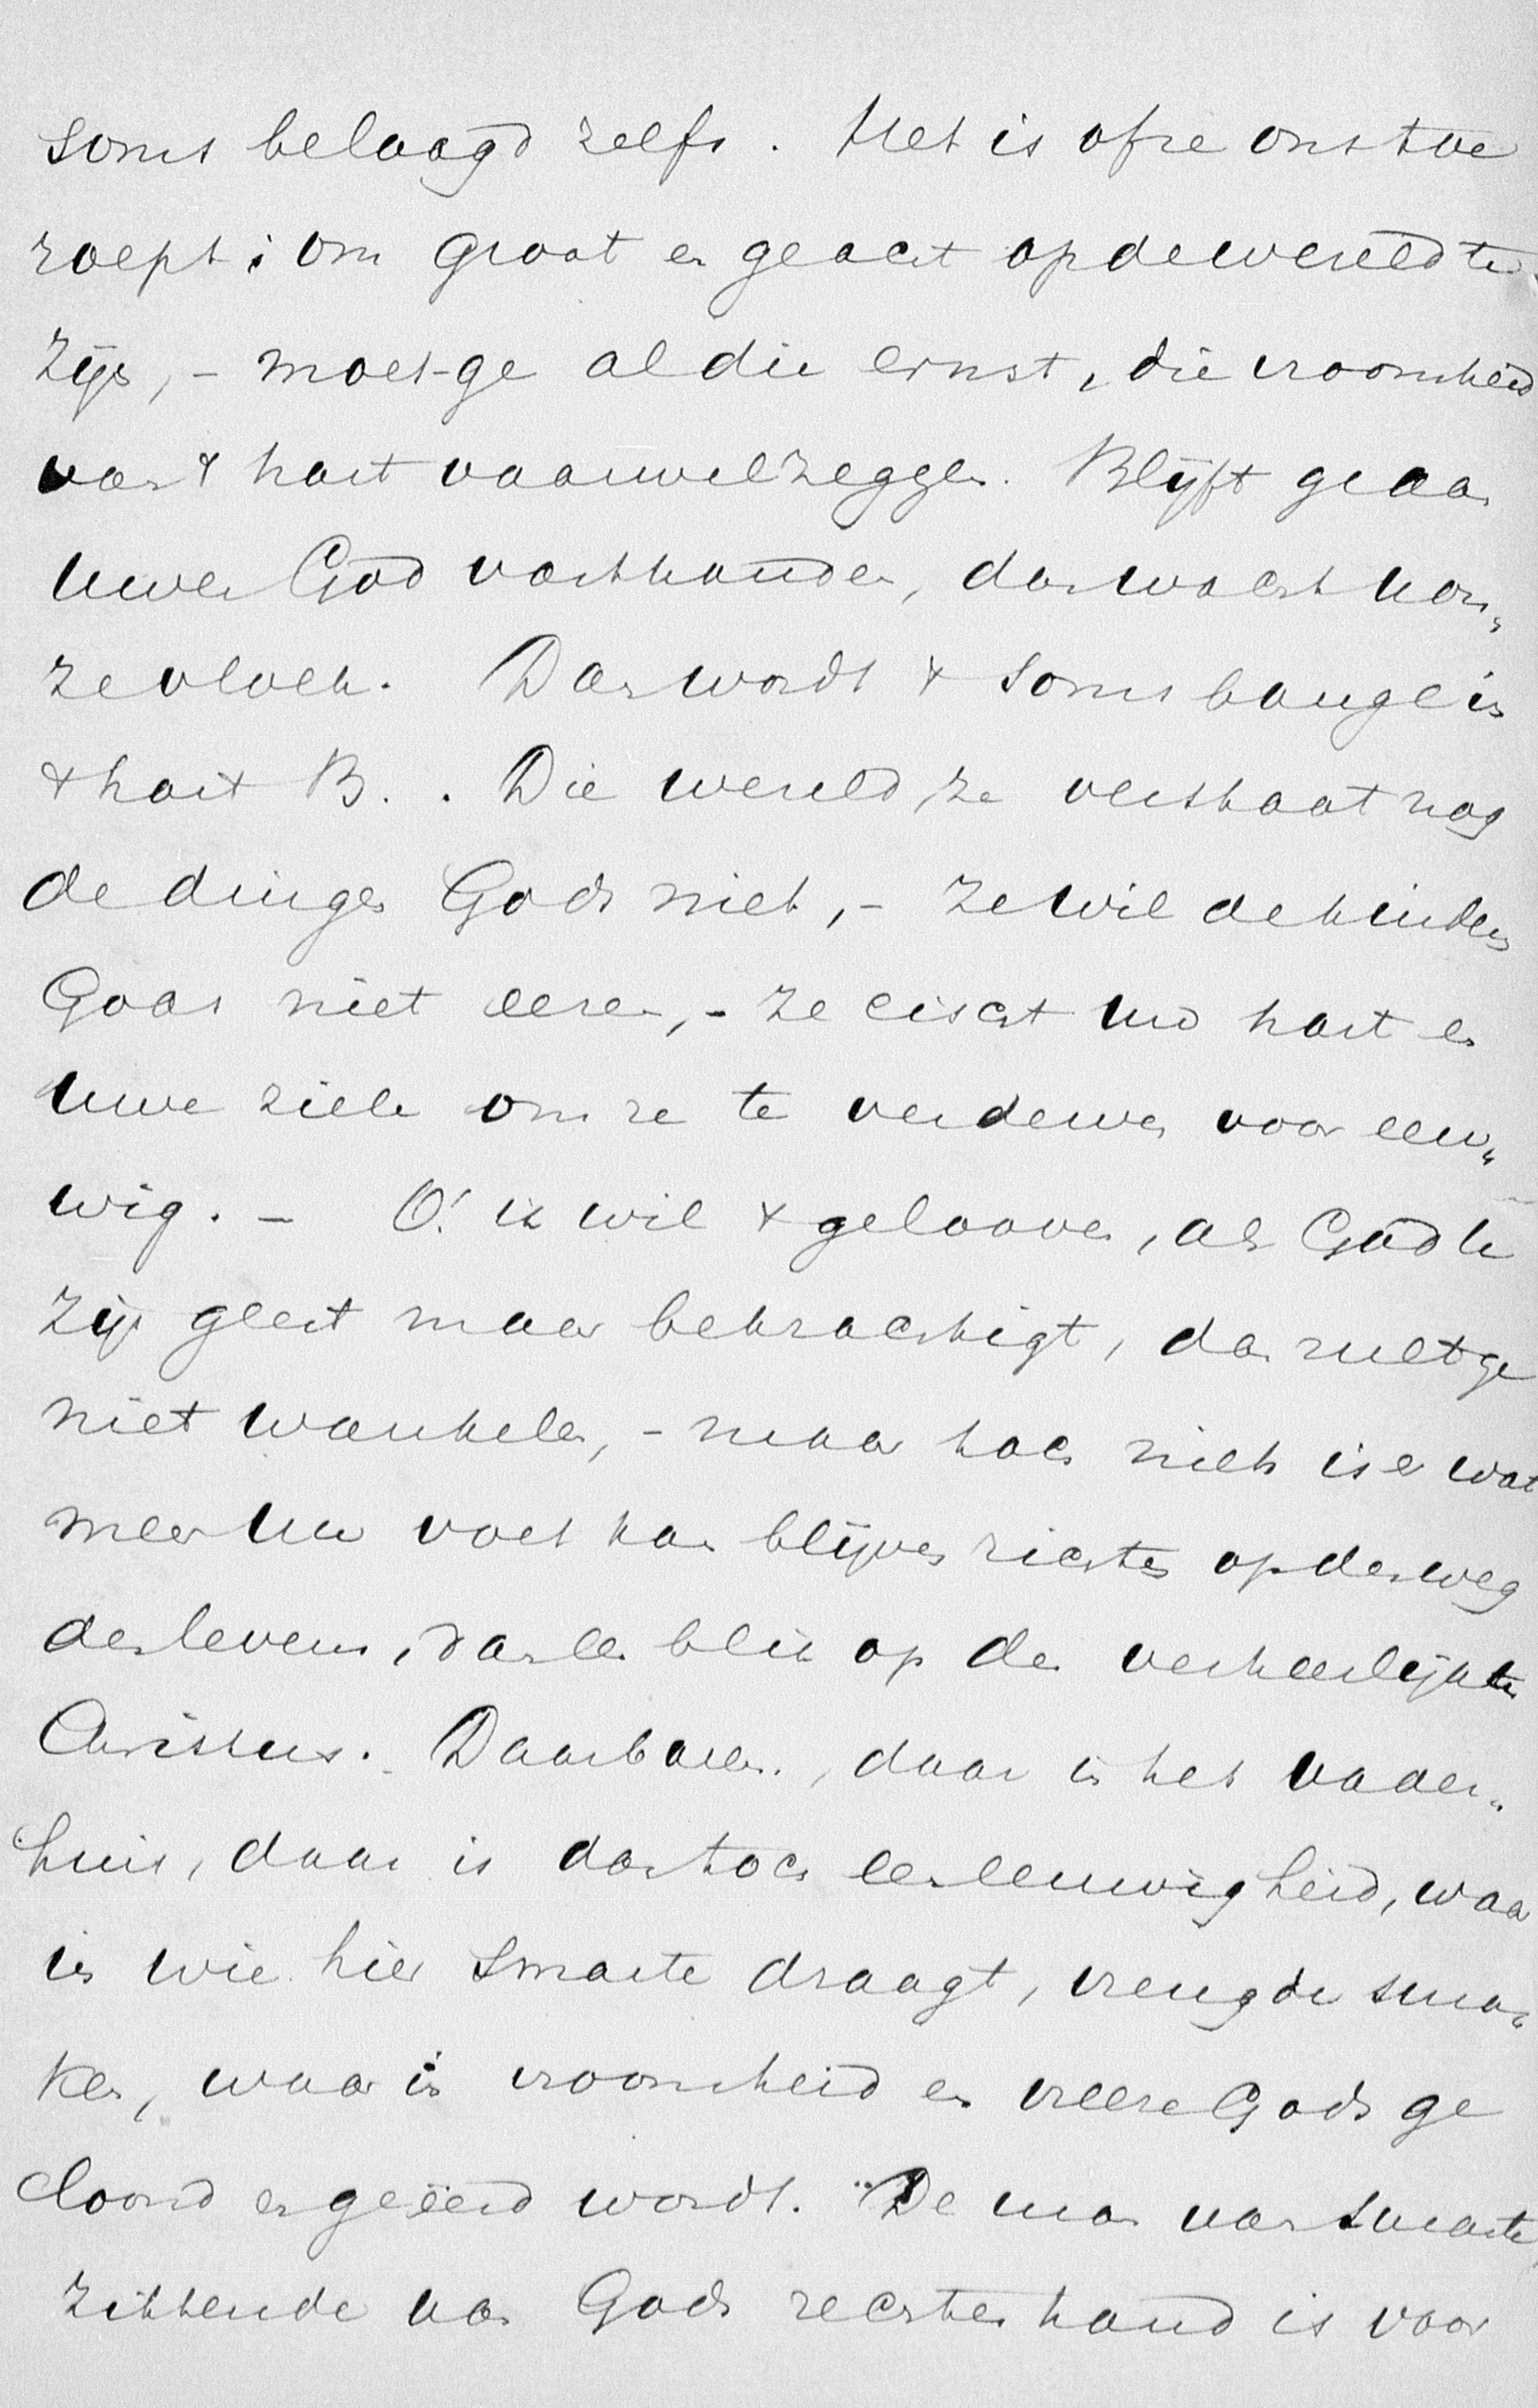 soms belaagd zelfs. Het is of ze ons toe
roept: om groot en geacht op de wereld te
zijn, – moet ge al die ernst, die vroomheid
van 't hart vaarwelzeggen. Blijft ge aan
uwen God vasthouden, dan wacht u on„
ze vloek. Dan wordt 't soms bange in
't hart B.. Die wereld, ze verstaat nog
de dingen Gods niet, – ze wil de kinderen
Gods niet eeren, – ze eischt uw hart en
uwe ziele om ze te verderven voor eeu„
wig. – O! ik wil 't gelooven, als God u
zijn geest maar bekrachtigt, dan zult ge
niet wankelen, – maar toch niets is er wat
meer uw voet kan blijven richten op den weg
des levens, dan een blik op den verheerlijkten
Christus. Daarboven, daar is het vader„
huis, daar is dan toch een eeuwigheid, waar
in wie hier smarte draagt, vreugde sma„
ken, waar in vroomheid en vreeze Gods ge
loond en geëerd wordt. "De man van smarte,
zittende aan Gods rechterhand is voor